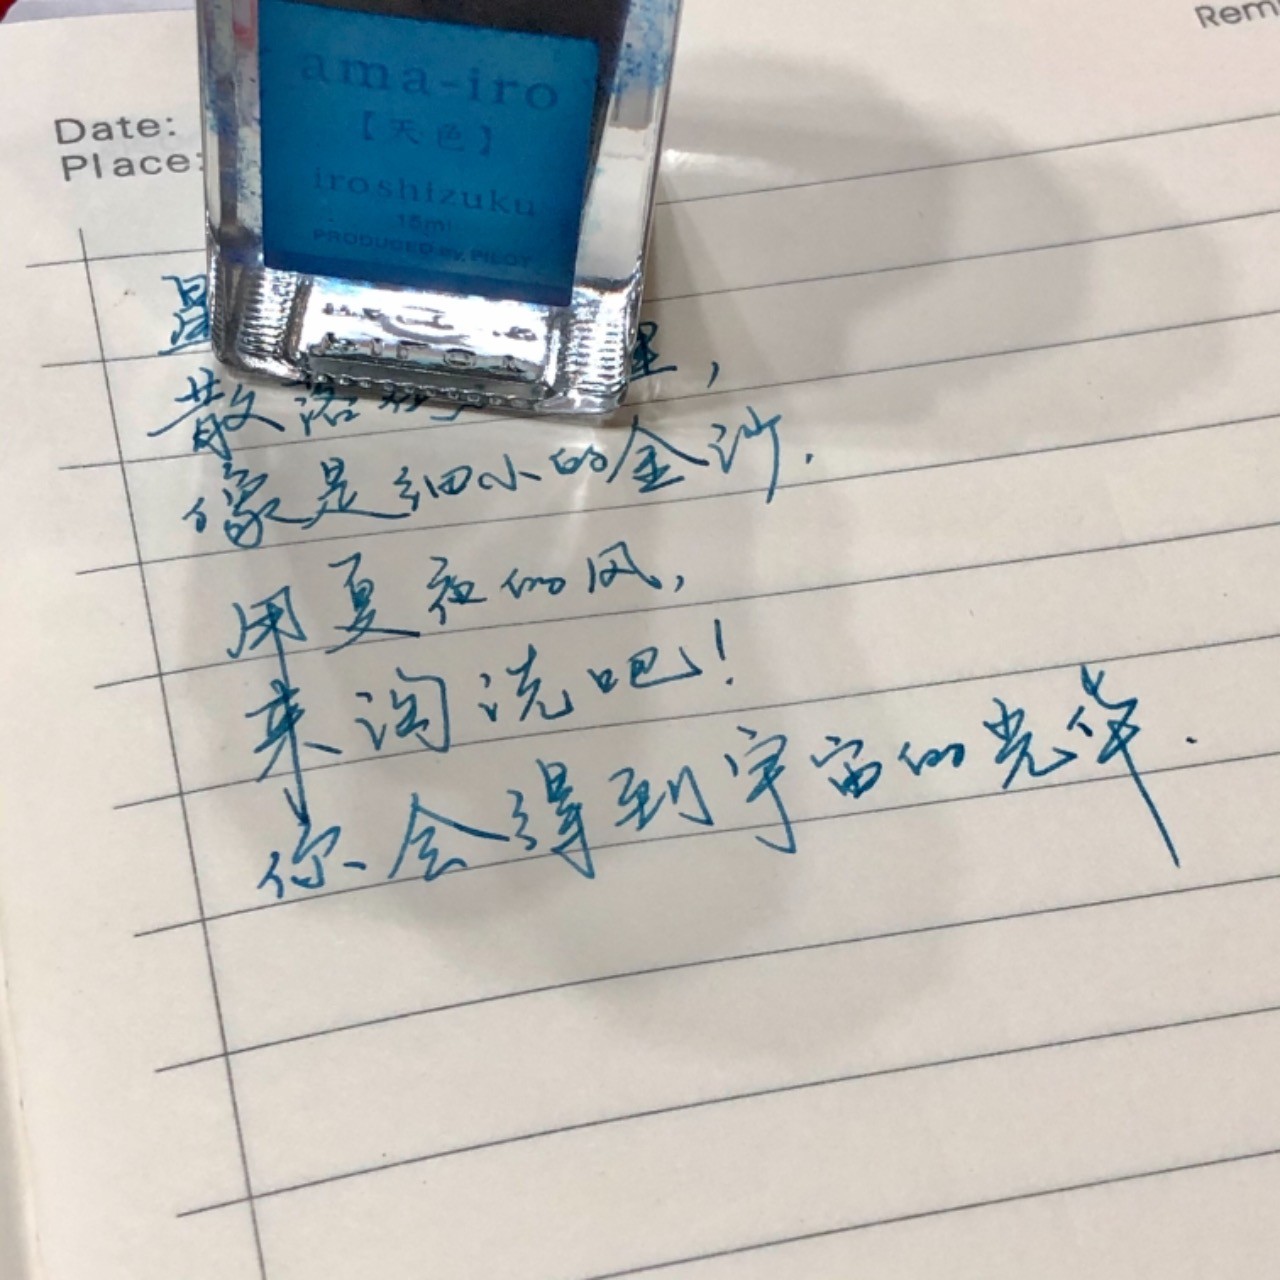 Rem
ama-iro
【天色】
iroshizuku
15ml
PRODUCED by PILOT
Date:
Place:
里，
散落在
像是细小的金沙.
用夏夜的风,
来淘洗吧!
你会得到宇宙的光华.